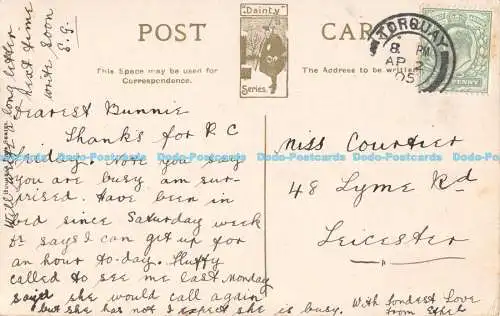 POST CARD
"Dainty"
Series.
This Space may be used for
Correspondence.
The Address to be written
TORQUAY
8 PM
AP 2
05
PENNY
Dearest Bunnie
Thanks for P.C
Friday. Now you say
you are busy am sur-
prised. Have been in
bed since Saturday week
Dr says I can get up for
an hour to-day. Fluffy
called to see me last Monday
said she would call again
but she has not I expect she is busy.
With fondest Love
from Ethel
Will write a long letter
next time
write soon
E.G.
Miss Courtier
48 Lyme Rd
Leicester
Dodo-Postcards Dodo-Postcards Dodo-Postcards Dodo-Postcards Dodo-Postcards